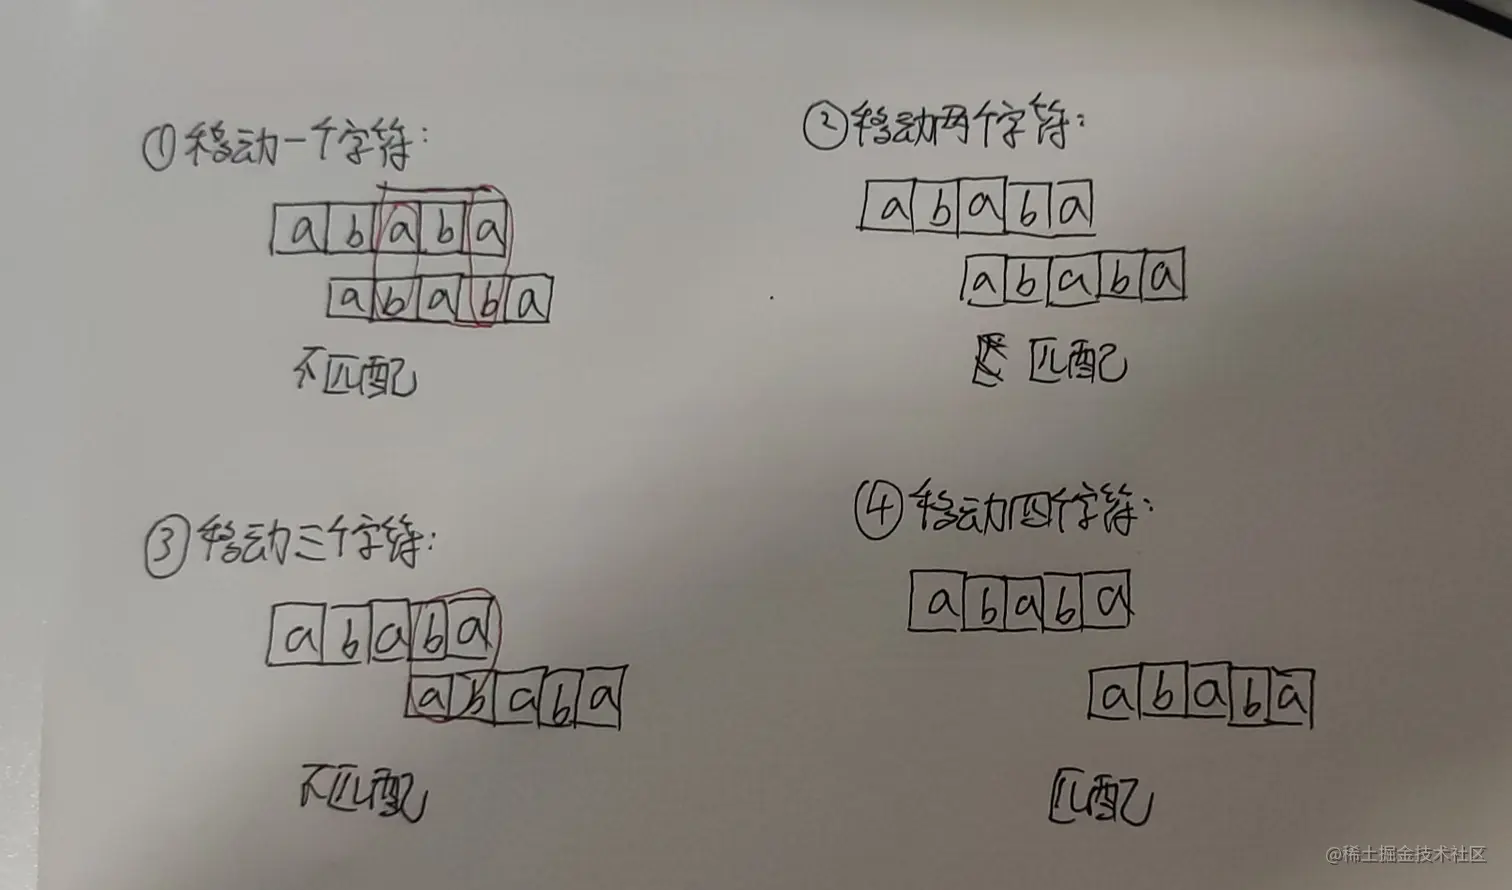 ①移动一个字符:
a b a b a
a b a b a
不匹配
②移动两个字符:
a b a b a
a b a b a
匹配
③移动三个字符:
a b a b a
a b a b a
不匹配
④移动四个字符:
a b a b a
a b a b a
匹配
@稀土掘金技术社区